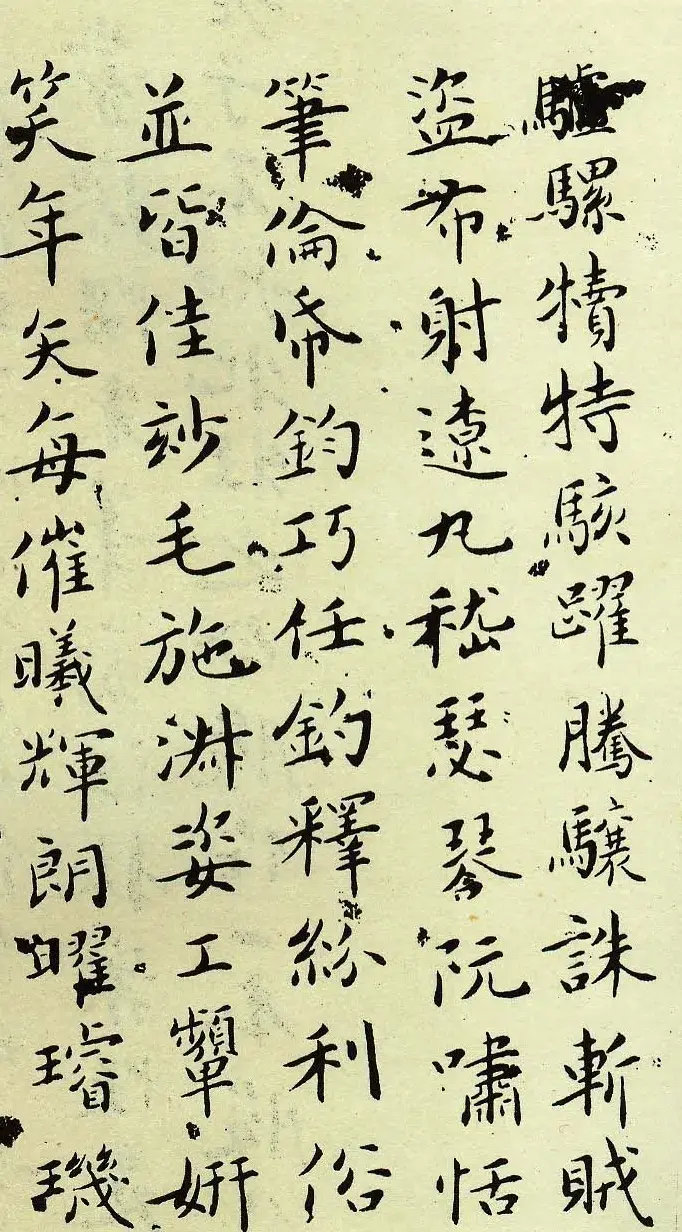 驢騾犢特駭躍騰驤誅斬賊
盜布射遼丸嵇瑟琴阮嘯恬
筆倫帋鈞巧任釣釋紛利俗
並皆佳玅毛施淋姿工顰妍
笑年矢每催曦輝朗曜璿璣